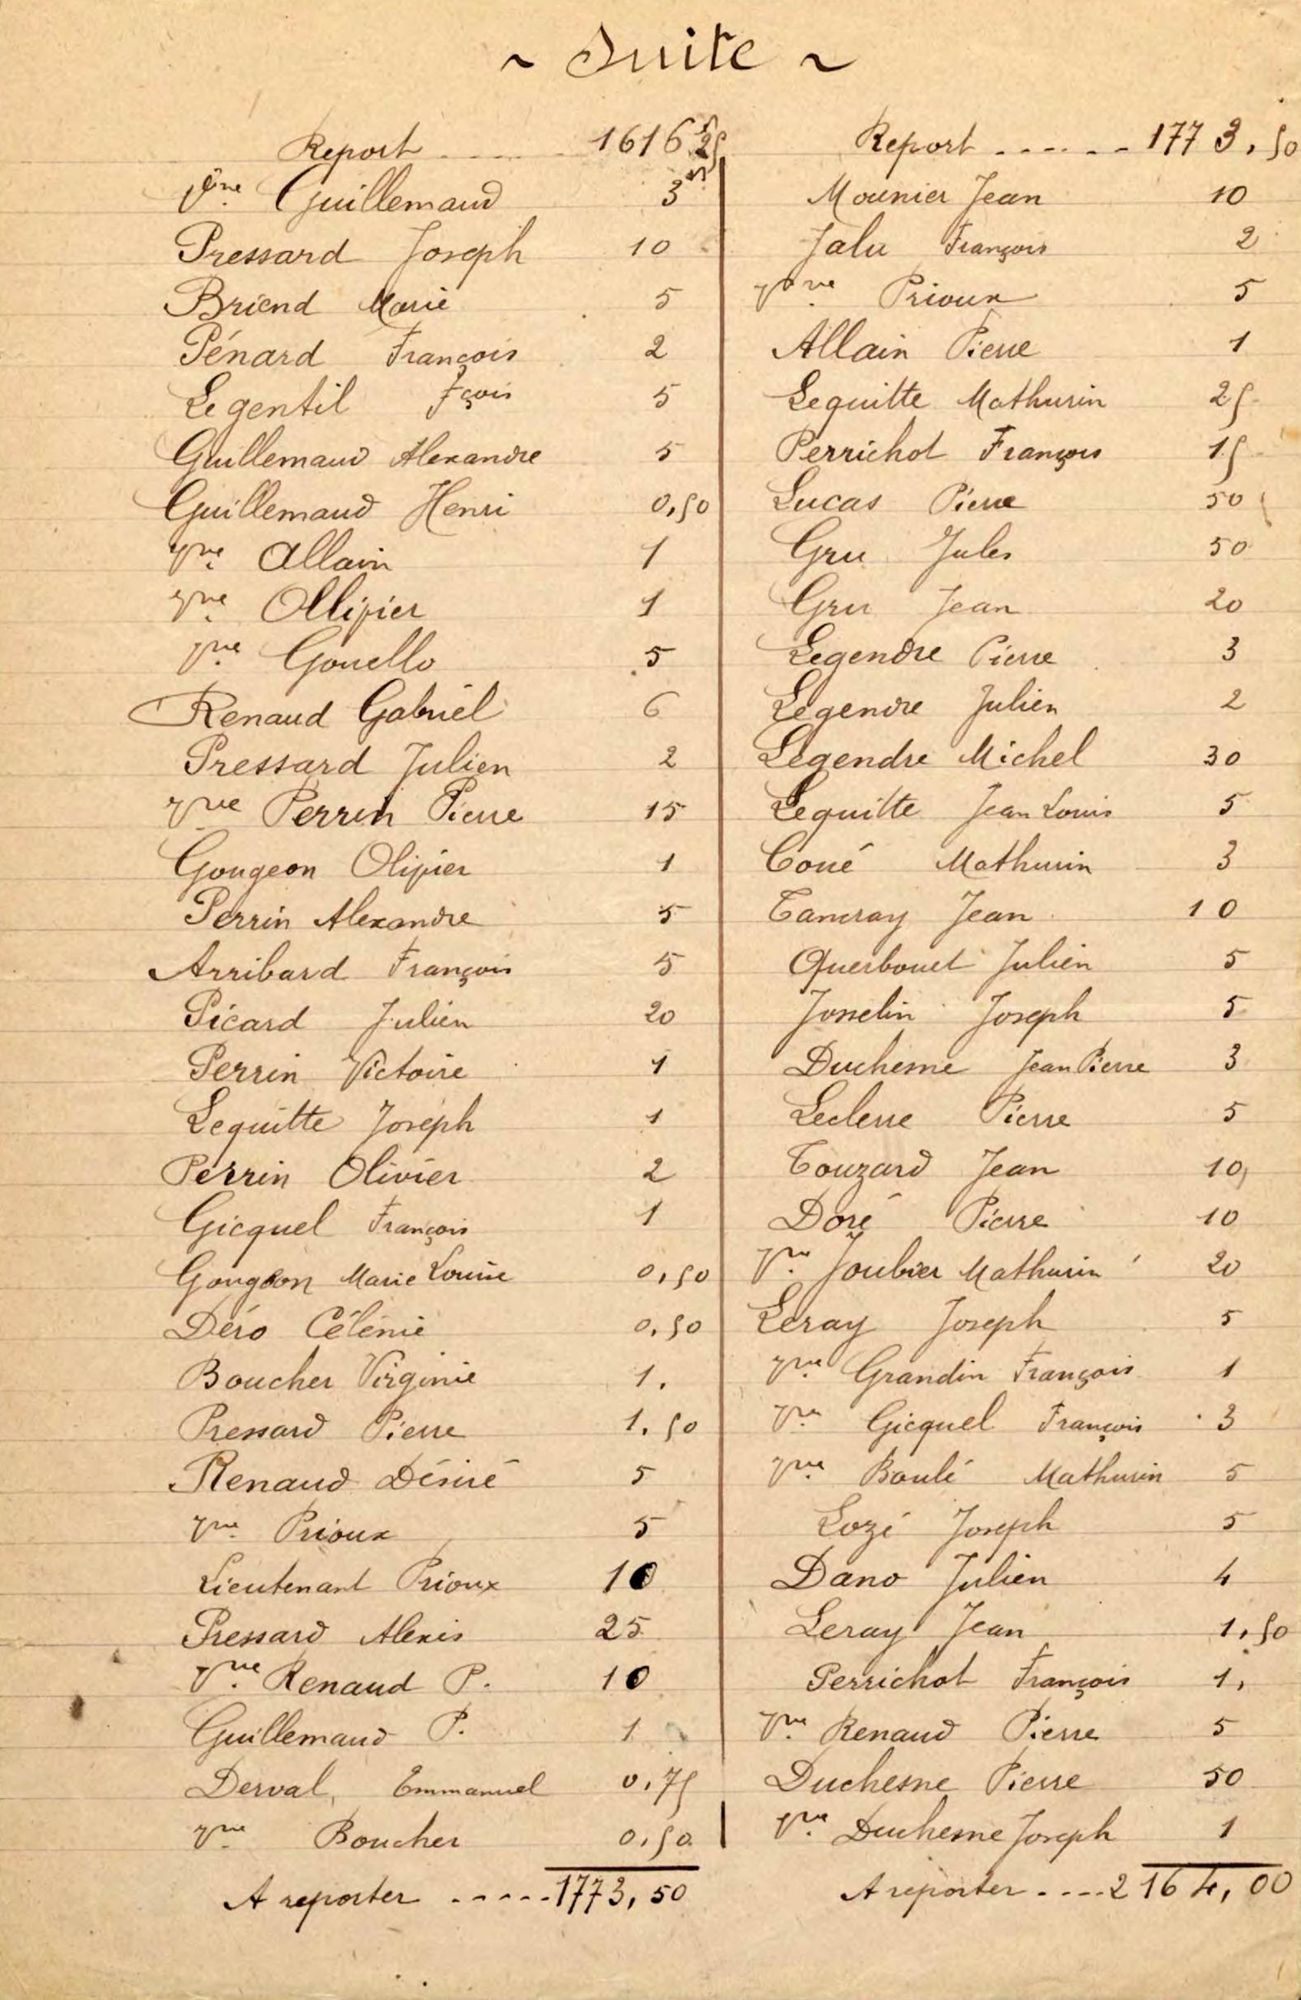 ~ Suite ~
Report ..... 1616,25
Vve Guillemaud 3
Pressard Joseph 10
Briend Marie 5
Pénard François 2
Legentil Fçois 5
Guillemaud Alexandre 5
Guillemaud Henri 0,50
Vve Allain 1
Vve Ollivier 1
Vve Gouello 5
Renaud Gabriel 6
Pressard Julien 2
Vve Perrin Pierre 15
Gougeon Olivier 1
Perrin Alexandre 5
Arribard François 5
Picard Julien 20
Perrin Victoire 1
Lequitte Joseph 1
Perrin Olivier 2
Gicquel François 1
Gougeon Marie Louise 0,50
Déro Célénie 0,50
Boucher Virginie 1.
Pressard Pierre 1,50
Renaud Désiré 5
Vve Prioux 5
Lieutenant Prioux 10
Pressard Alexis 25
Vve Renaud P. 10
Guillemaud P. 1
Derval, Emmanuel 0,75
Vve Boucher 0,50
A reporter ..... 1773,50
Report ...... 1773,50
Mounier Jean 10
Jalu François 2
Vve Prioux 5
Allain Pierre 1
Lequitte Mathurin 25
Perrichot François 15
Lucas Pierre 50
Gru Jules 50
Gru Jean 20
Legendre Pierre 3
Legendre Julien 2
Legendre Michel 30
Lequitte Jean Louis 5
Coué Mathurin 3
Tancray Jean 10
Querbouet Julien 5
Josselin Joseph 5
Duchesne Jean Pierre 3
Leclerre Pierre 5
Touzard Jean 10
Doré Pierre 10
Vve Joubier Mathurin 20
Leray Joseph 5
Vve Grandin François 1
Vve Gicquel François 3
Vve Boulé Mathurin 5
Lozé Joseph 5
Dano Julien 4
Leray Jean 1,50
Perrichot François 1,
Vve Renaud Pierre 5
Duchesne Pierre 50
Vve Duchesne Joseph 1
A reporter .... 2164,00